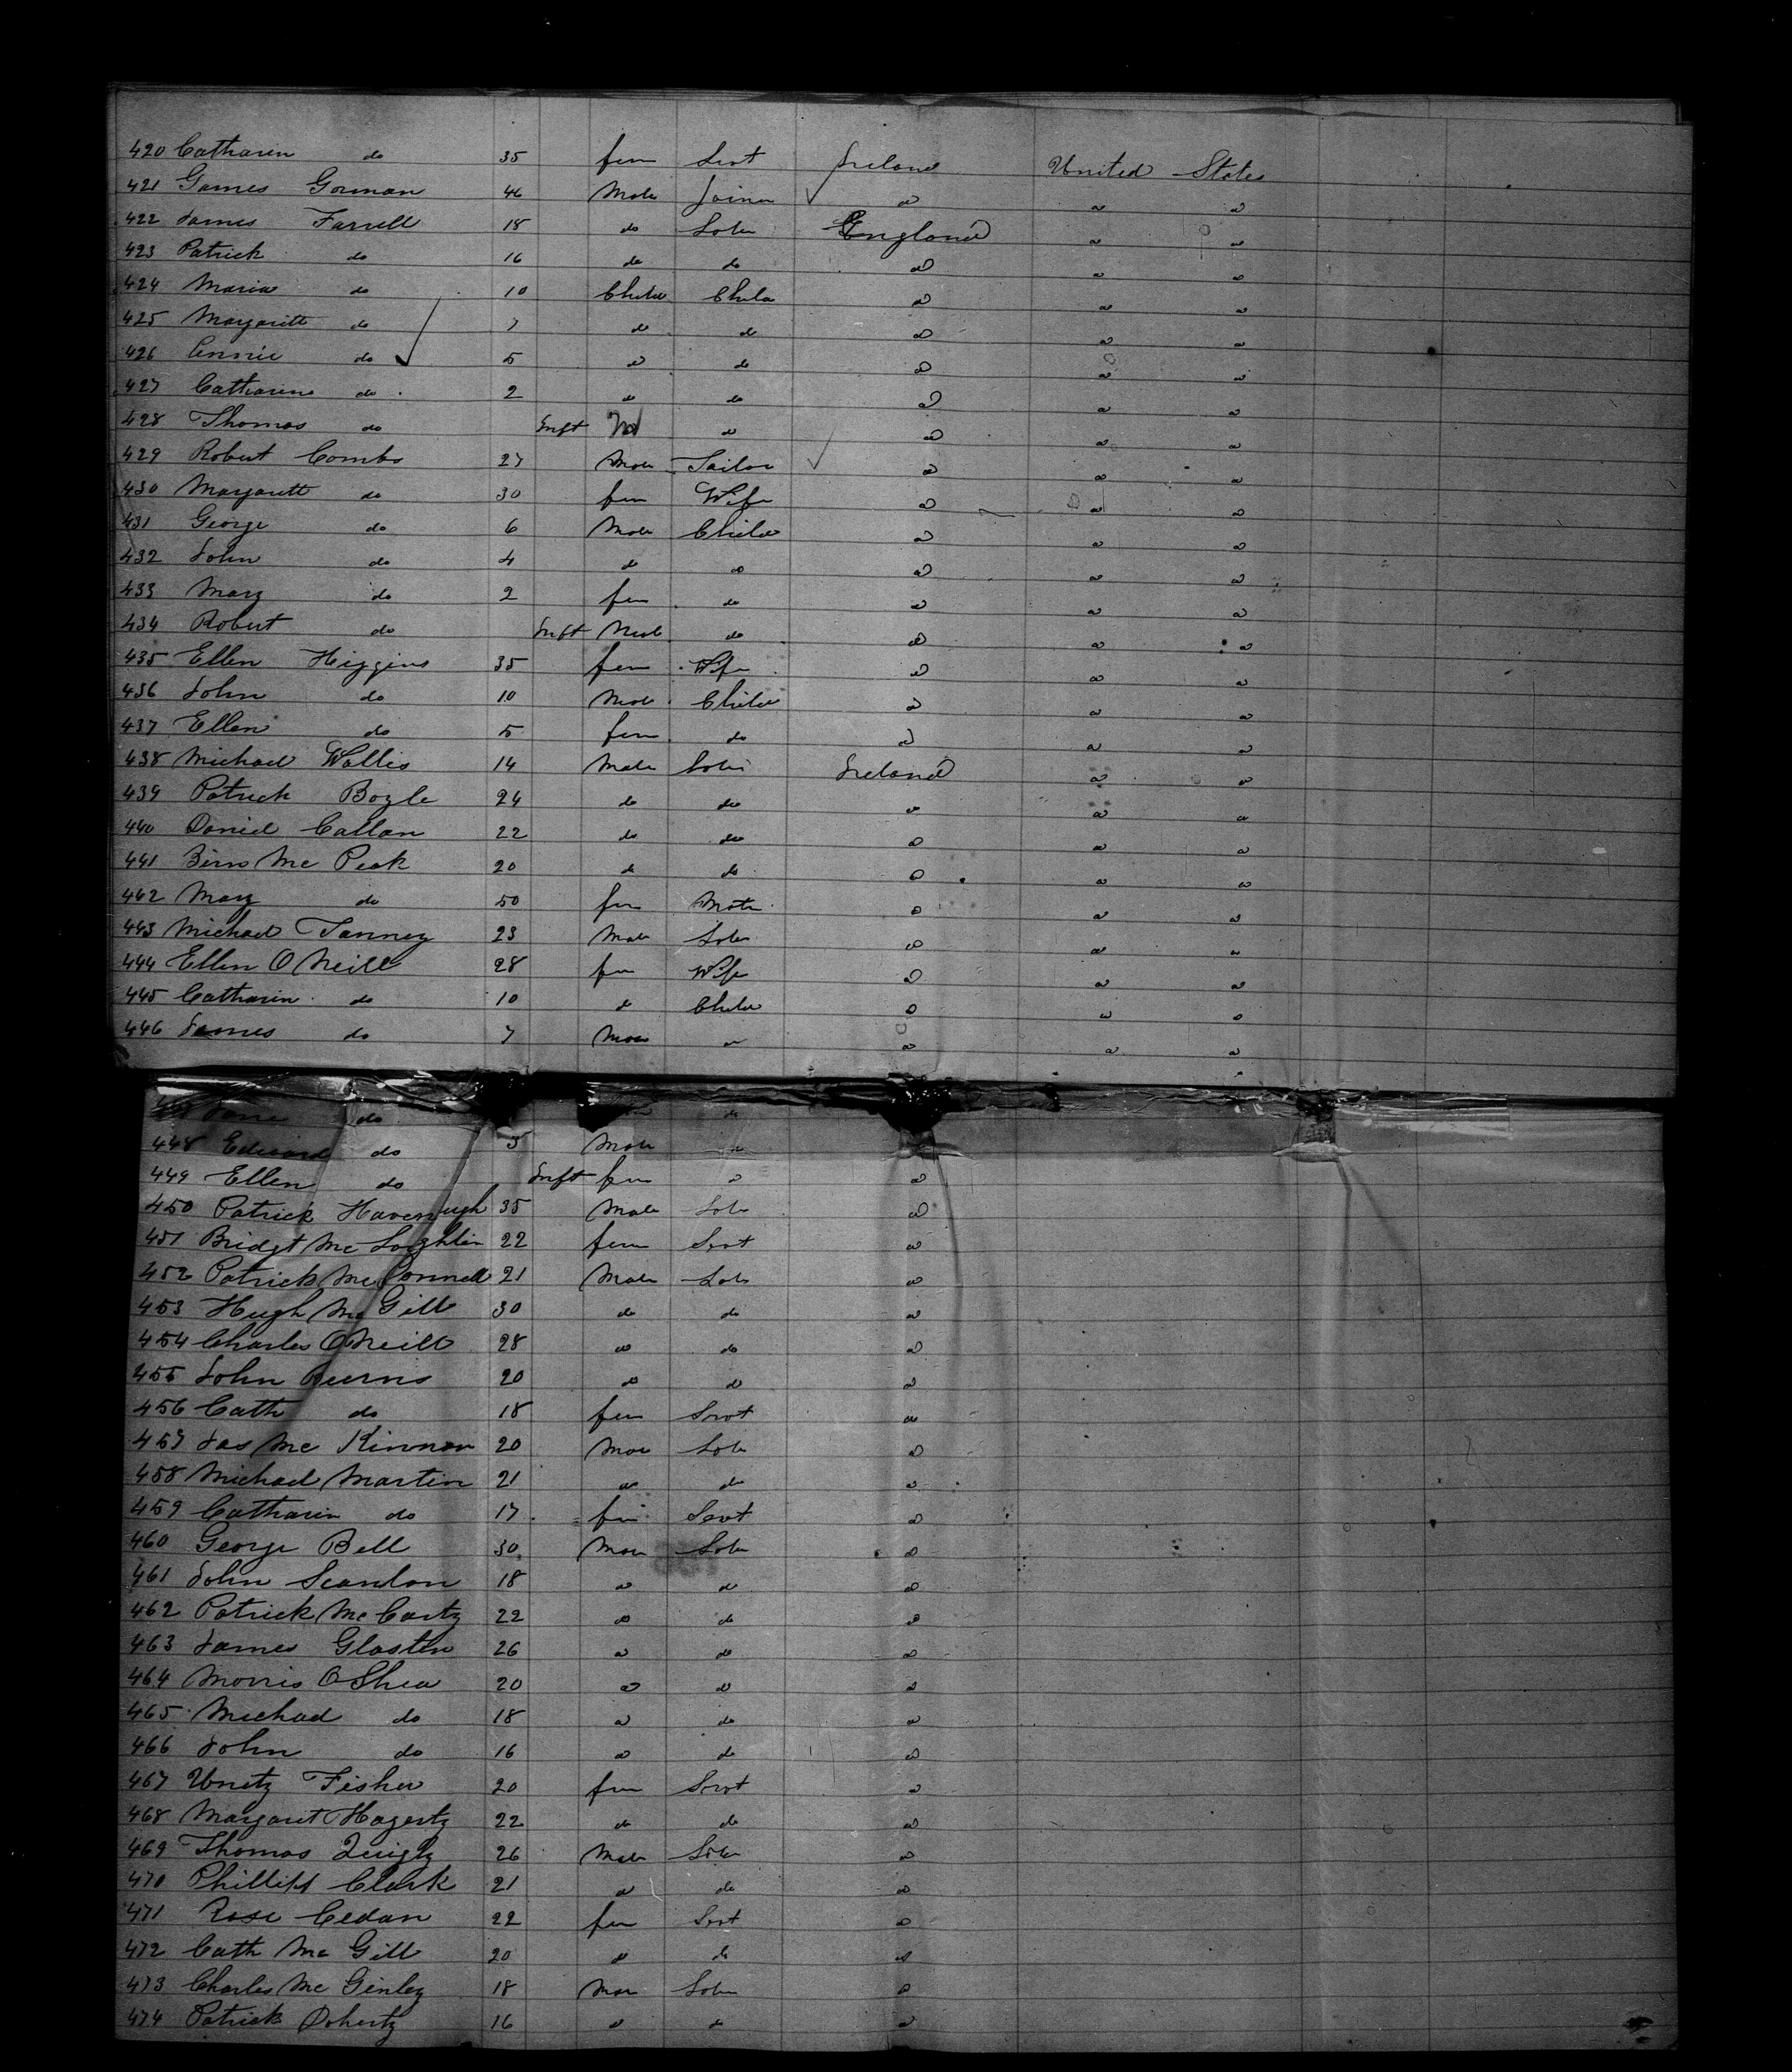 420 Catharin do 35 fem Servt Ireland United States
421 James Gorman 46 Male Joiner do do do
422 James Farrell 18 do Labr England do do
423 Patrick do 16 do do do do do
424 Maria do 10 Child Child do do do
425 Margarett do 7 do do do do do
426 Annie do 5 do do do do do
427 Catharine do 2 do do do do do
428 Thomas do Inft do do do do
429 Robert Combs 27 Male Tailor do do do
430 Margarett do 30 fem Wife do do do
431 George do 6 Male Child do do do
432 John do 4 do do do do do
433 Mary do 2 fem do do do do
434 Robert do Inft Male do do do do
435 Ellen Higgins 35 fem Wife do do do
436 John do 10 Male Child do do do
437 Ellen do 5 fem do do do do
438 Michael Wallis 14 Male Labr Ireland do do
439 Patrick Boyle 24 do do do do do
440 Daniel Callan 22 do do do do do
441 Mc Peak 20 do do do do do
442 Mary do 50 fem Moth do do do
443 Michael Tanney 23 Male Labr do do do
444 Ellen O Neill 28 fem Wife do do do
445 Catharin do 10 do Child do do do
446 James do 7 Male do do do do
Jane do do
448 Edward do 3 Male do
449 Ellen do Inft fem do do
450 Patrick Havenugh 35 Male Labr do
451 Bridgt Mc Loghlin 22 fem Servt do
452 Patrick McConnell 21 Male Labr do
453 Hugh Mc Gill 30 do do do
454 Charles ONeill 28 do do do
455 John Burns 20 do do do
456 Cath do 18 fem Servt do
457 Jas Mc Kinnon 20 Male Labr do
458 Michael Martin 21 do do do
459 Catharin do 17 fem Servt do
460 George Bell 30 Male Labr do
461 John Scanlon 18 do do do
462 Patrick Mc Carty 22 do do do
463 James Glasten 26 do do do
464 Morris OShea 20 do do do
465 Michael do 18 do do do
466 John do 16 do do do
467 Unity Fisher 20 fem Servt do
468 Margaret Hagerty 22 do do do
469 Thomas Quigly 26 Male Labr do
470 Phillip Clark 21 do do do
471 Rose Cedan 22 fem Servt do
472 Cath Mc Gill 20 do do do
473 Charles Mc Ginley 18 Male Labr do
474 Patrick Doherty 16 do do do